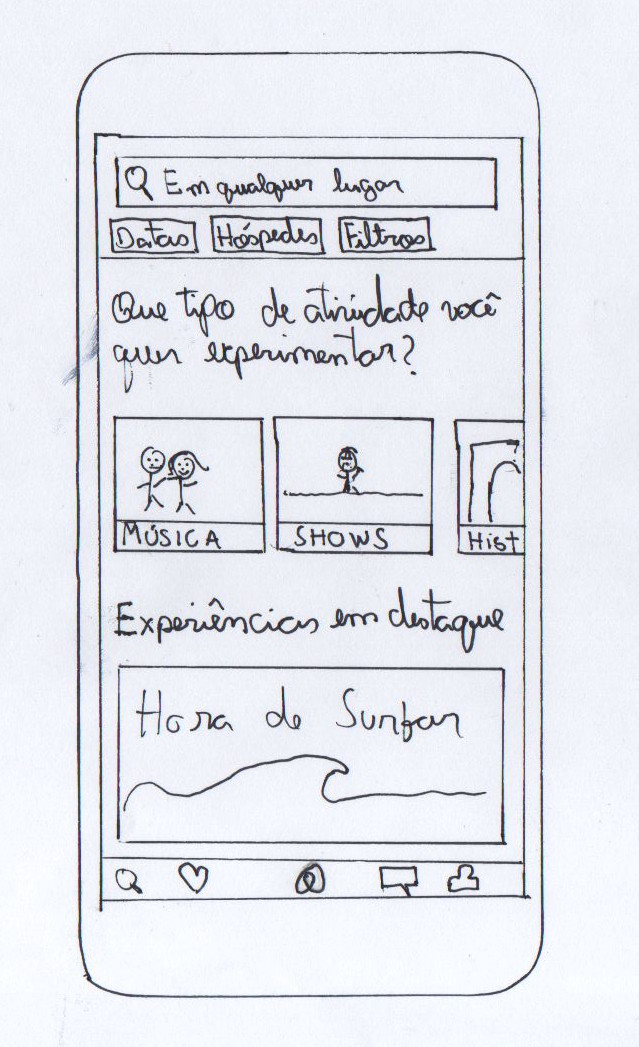 Em qualquer lugar
Datas Hóspedes Filtros
Que tipo de atividade você
quer experimentar?
MÚSICA SHOWS Hist
Experiências em destaque
Hora de Surfar